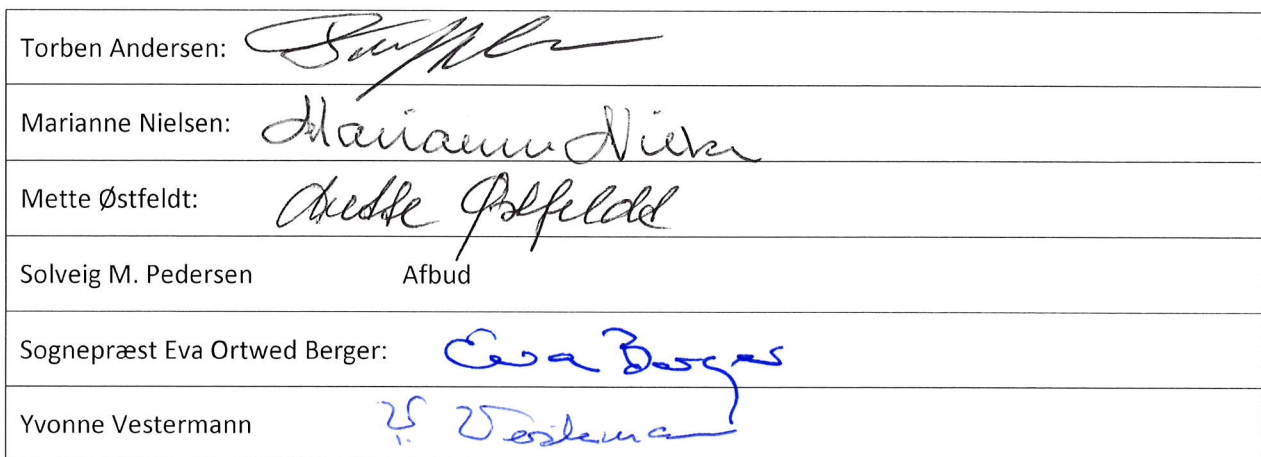 Torben Andersen:
Marianne Nielsen: Marianne Nielsen
Mette Østfeldt: Mette Østfeldt
Solveig M. Pedersen Afbud
Sognepræst Eva Ortwed Berger: Eva Berger
Yvonne Vestermann Y. Vestermann